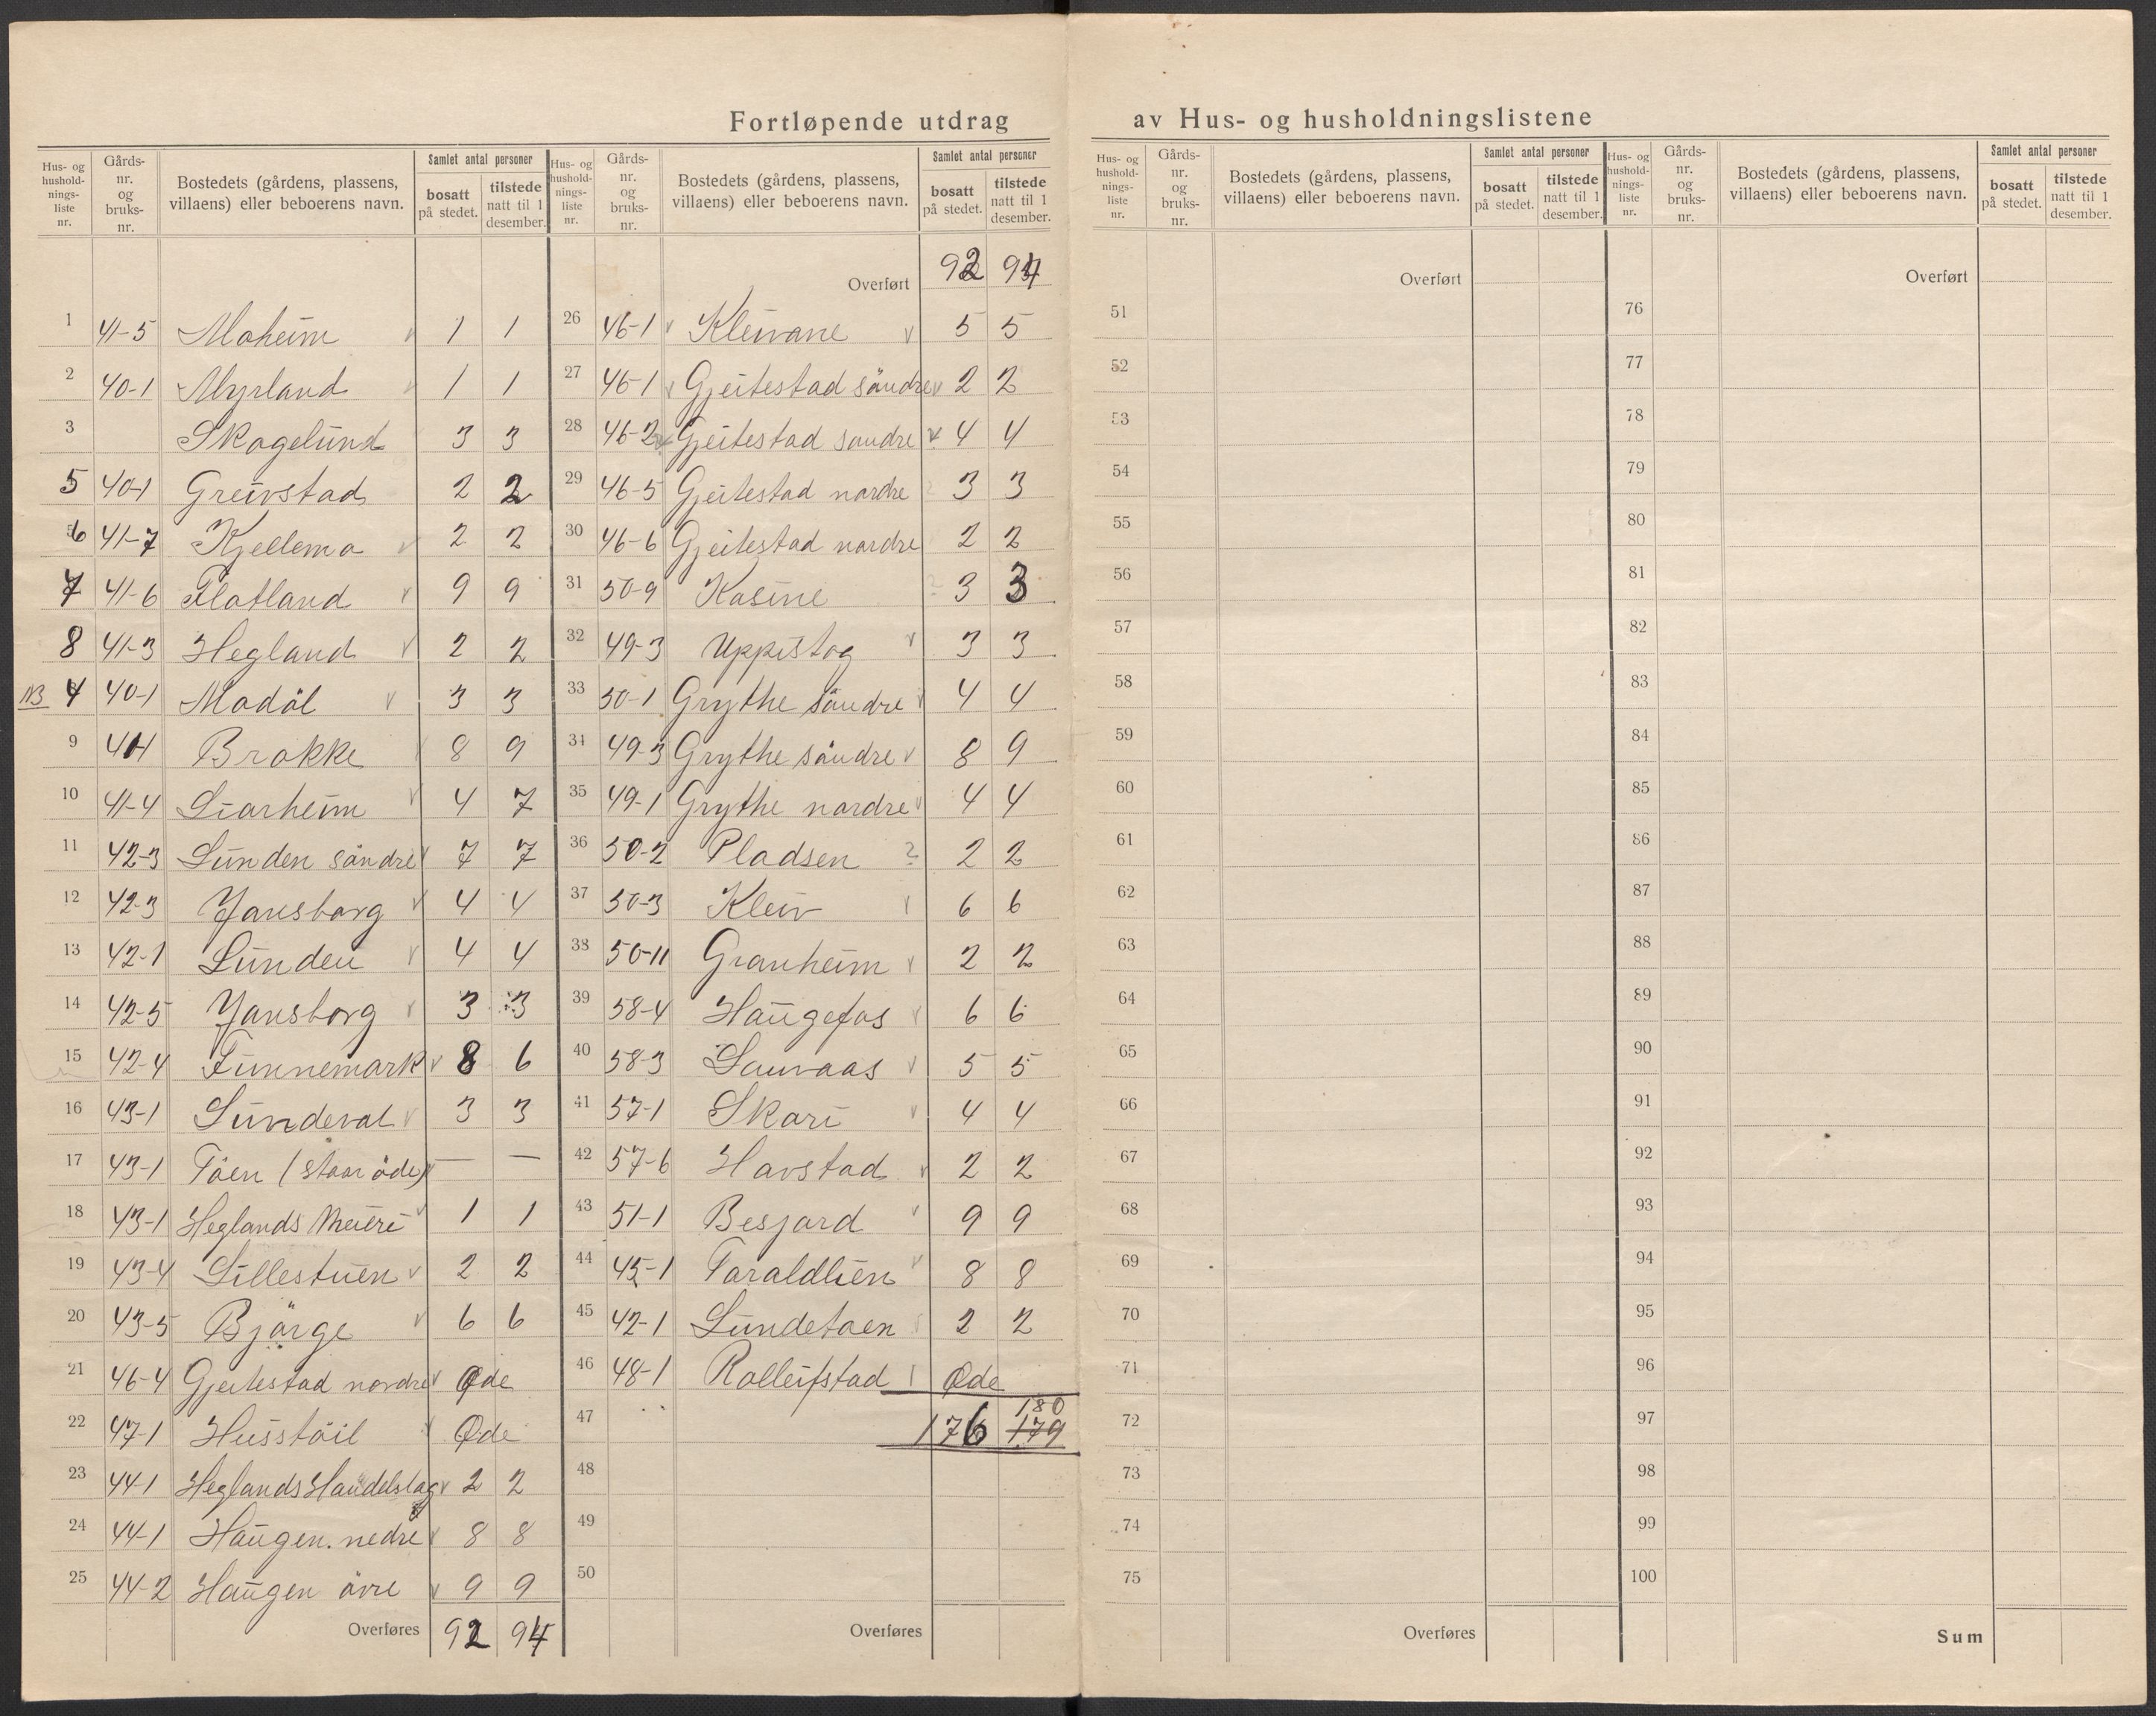 Fortløpende utdrag av Hus- og husholdningslistene
Hus- og husholdningsliste nr. | Gårds-nr. og bruks-nr. | Bostedets (gårdens, plassens, villaens) eller beboerens navn. | Samlet antal personer | bosatt på stedet. | tilstede natt til 1 desember.
1 41-5 Moheim v 1 1
2 40-1 Myrland v 1 1
3 Skogelund 3 3
5 40-1 Greivstad 2 2
6 41-7 Kjellemo v 2 2
7 41-6 Flatland v 9 9
8 41-3 Hegland v 2 2
NB 4 40-1 Modøl v 3 3
9 41-1 Brokke v 8 9
10 41-4 Liarheim v 4 7
11 42-3 Lunden söndre v 7 7
12 42-3 Jansborg v 4 4
13 42-1 Lunden v 4 4
14 42-5 Jansborg v 3 3
15 42-4 Funnemark v 8 6
16 43-1 Lundeval v 3 3
17 43-1 Töen (staar öde) v — —
18 43-1 Heglands Meieri v 1 1
19 43-4 Lillestuen v 2 2
20 43-5 Björge v 6 6
21 46-4 Gjeitestad nordre v Øde
22 47-1 Husstöil v Øde
23 44-1 Heglands Handelslag v 2 2
24 44-1 Haugen nedre v 8 8
25 44-2 Haugen övre v 9 9
Overføres 92 94
Hus- og husholdningsliste nr. | Gårds-nr. og bruks-nr. | Bostedets (gårdens, plassens, villaens) eller beboerens navn. | Samlet antal personer | bosatt på stedet. | tilstede natt til 1 desember.
Overført 92 94
26 46-1 v Kleivane v 5 5
27 46-1 v Gjeitestad söndre v 2 2
28 46-2 v Gjeitestad sondre v 4 4
29 46-5 Gjeitestad nordre ? 3 3
30 46-6 Gjeitestad nordre 2 2
31 50-9 Kasine ? 3 3
32 49-3 Uppistog v 3 3
33 50-1 Grythe söndre v 4 4
34 49-3 Grythe söndre v 8 9
35 49-1 Grythe nordre v 4 4
36 50-2 Pladsen ? 2 2
37 50-3 Kleiv v 6 6
38 50-11 Granheim v 2 2
39 58-4 Haugefos v 6 6
40 58-3 Lauvaas v 5 5
41 57-1 Skori v 4 4
42 57-6 Havstad v 2 2
43 51-1 Besjord v 9 9
44 45-1 Taraldlien v 8 8
45 42-1 Lundetoen v 2 2
46 48-1 Rolleifstad v Øde
180
47 176 179
48
49
50
Overføres
Hus- og husholdningsliste nr. | Gårds-nr. og bruks-nr. | Bostedets (gårdens, plassens, villaens) eller beboerens navn. | Samlet antal personer | bosatt på stedet. | tilstede natt til 1 desember.
Overført
51
52
53
54
55
56
57
58
59
60
61
62
63
64
65
66
67
68
69
70
71
72
73
74
75
Overføres
Hus- og husholdningsliste nr. | Gårds-nr. og bruks-nr. | Bostedets (gårdens, plassens, villaens) eller beboerens navn. | Samlet antal personer | bosatt på stedet. | tilstede natt til 1 desember.
Overført
76
77
78
79
80
81
82
83
84
85
86
87
88
89
90
91
92
93
94
95
96
97
98
99
100
Sum